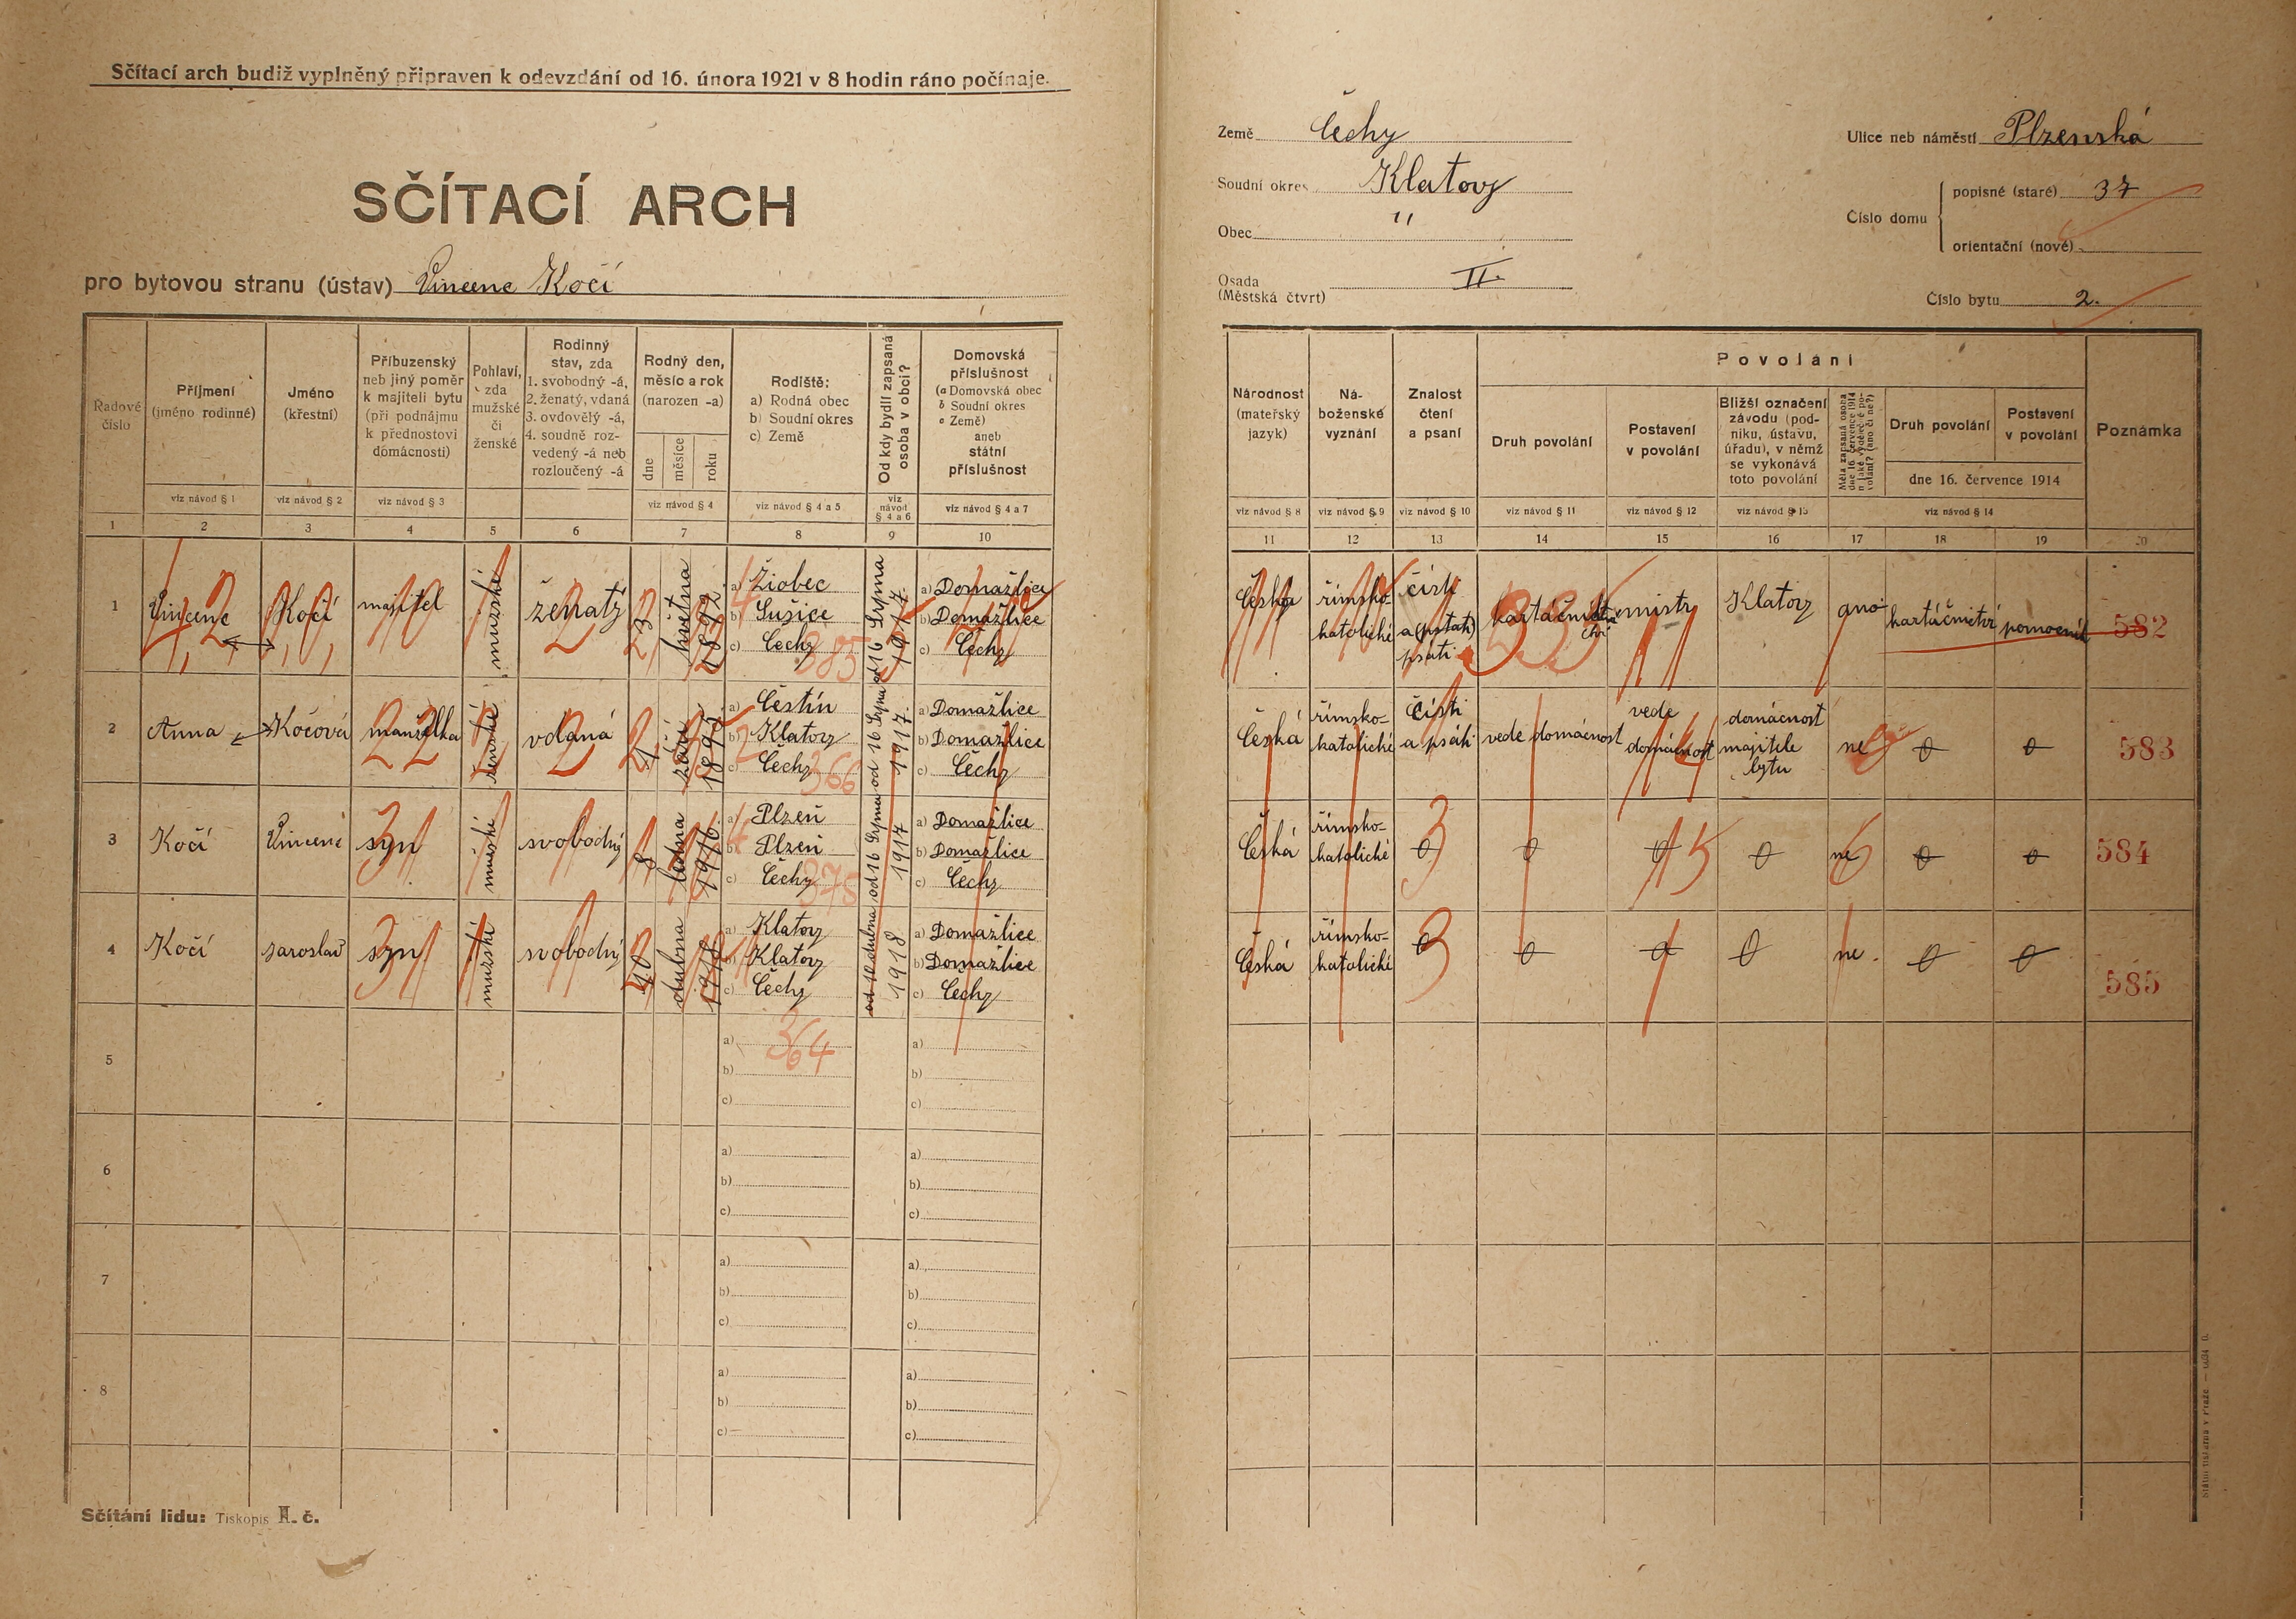 Sčítací arch budiž vyplněný připraven k odevzdání od 16. února 1921 v 8 hodin ráno počínaje.
SČÍTACÍ ARCH
pro bytovou stranu (ústav) Vincenc Kočí
Země Čechy
Soudní okres Klatovy
Obec "
Osada
(Městská čtvrt) II.
Ulice neb náměstí Plzenská
Číslo domu
popisné (staré) 37
orientační (nové)
Číslo bytu 2.
Řadové číslo
Příjmení (jméno rodinné)
Jméno (křestní)
Příbuzenský neb jiný poměr k majiteli bytu (při podnájmu k přednostovi domácnosti)
Pohlaví, zda mužské či ženské
Rodinný stav, zda 1. svobodný -á, 2. ženatý, vdaná 3. ovdovělý -á, 4. soudně rozvedený -á neb rozloučený -á
Rodný den, měsíc a rok (narozen -a)
dne měsíce roku
Rodiště: a) Rodná obec b) Soudní okres c) Země
Od kdy bydlí zapsaná osoba v obci?
Domovská příslušnost (a Domovská obec b Soudní okres c Země) aneb státní příslušnost
viz návod § 1 viz návod § 2 viz návod § 3 viz návod § 4 viz návod § 4 a 5 viz návod § 4 a 6 viz návod § 4 a 7
1 2 3 4 5 6 7 8 9 10
1 Vincenc Kočí majitel mužské ženatý 23 května 1892 a) Žiobec b) Sušice c) Čechy od 16 Srpna 1917. a) Domažlice b) Domažlice c) Čechy
385
2 Anna Kočová manželka ženské vdaná září a) Čestín b) Klatovy c) Čechy od 16 Srpna 1917. a) Domažlice b) Domažlice c) Čechy
366
3 Kočí Vincenc syn mužské svobodný 8 ledna 1916 a) Plzeň b) Plzeň c) Čechy od 16 Srpna 1917 a) Domažlice b) Domažlice c) Čechy
375
4 Kočí Jaroslav syn mužské svobodný 10 dubna 1918 a) Klatovy b) Klatovy c) Čechy od 10 dubna 1918 a) Domažlice b) Domažlice c) Čechy
364
5 a) b) c) a) b) c)
6 a) b) c) a) b) c)
7 a) b) c) a) b) c)
8 a) b) c) a) b) c)
Sčítání lidu: Tiskopis II. č.
Národnost (mateřský jazyk)
Náboženské vyznání
Znalost čtení a psaní
Povolání
Druh povolání
Postavení v povolání
Bližší označení závodu (podniku, ústavu, úřadu), v němž se vykonává toto povolání
Měla zapsaná osoba dne 16. července 1914 nějaké výdělečné povolání? (ano či ne?)
Druh povolání
Postavení v povolání
dne 16. července 1914
Poznámka
viz návod § 8 viz návod § 9 viz návod § 10 viz návod § 11 viz návod § 12 viz návod § 13 viz návod § 14
11 12 13 14 15 16 17 18 19 20
Česká římsko-katolické čísti a (pstati) psáti mistr Klatovy ano kartáčnictví pomocník 582
Česká římsko-katolické čísti a psáti vede domácnost vede domácnost domácnost majitele bytu ne 0 0 583
Česká římsko-katolické 0 0 0 0 ne 0 0 584
Česká římsko-katolické 0 0 0 0 ne. 0 0 585